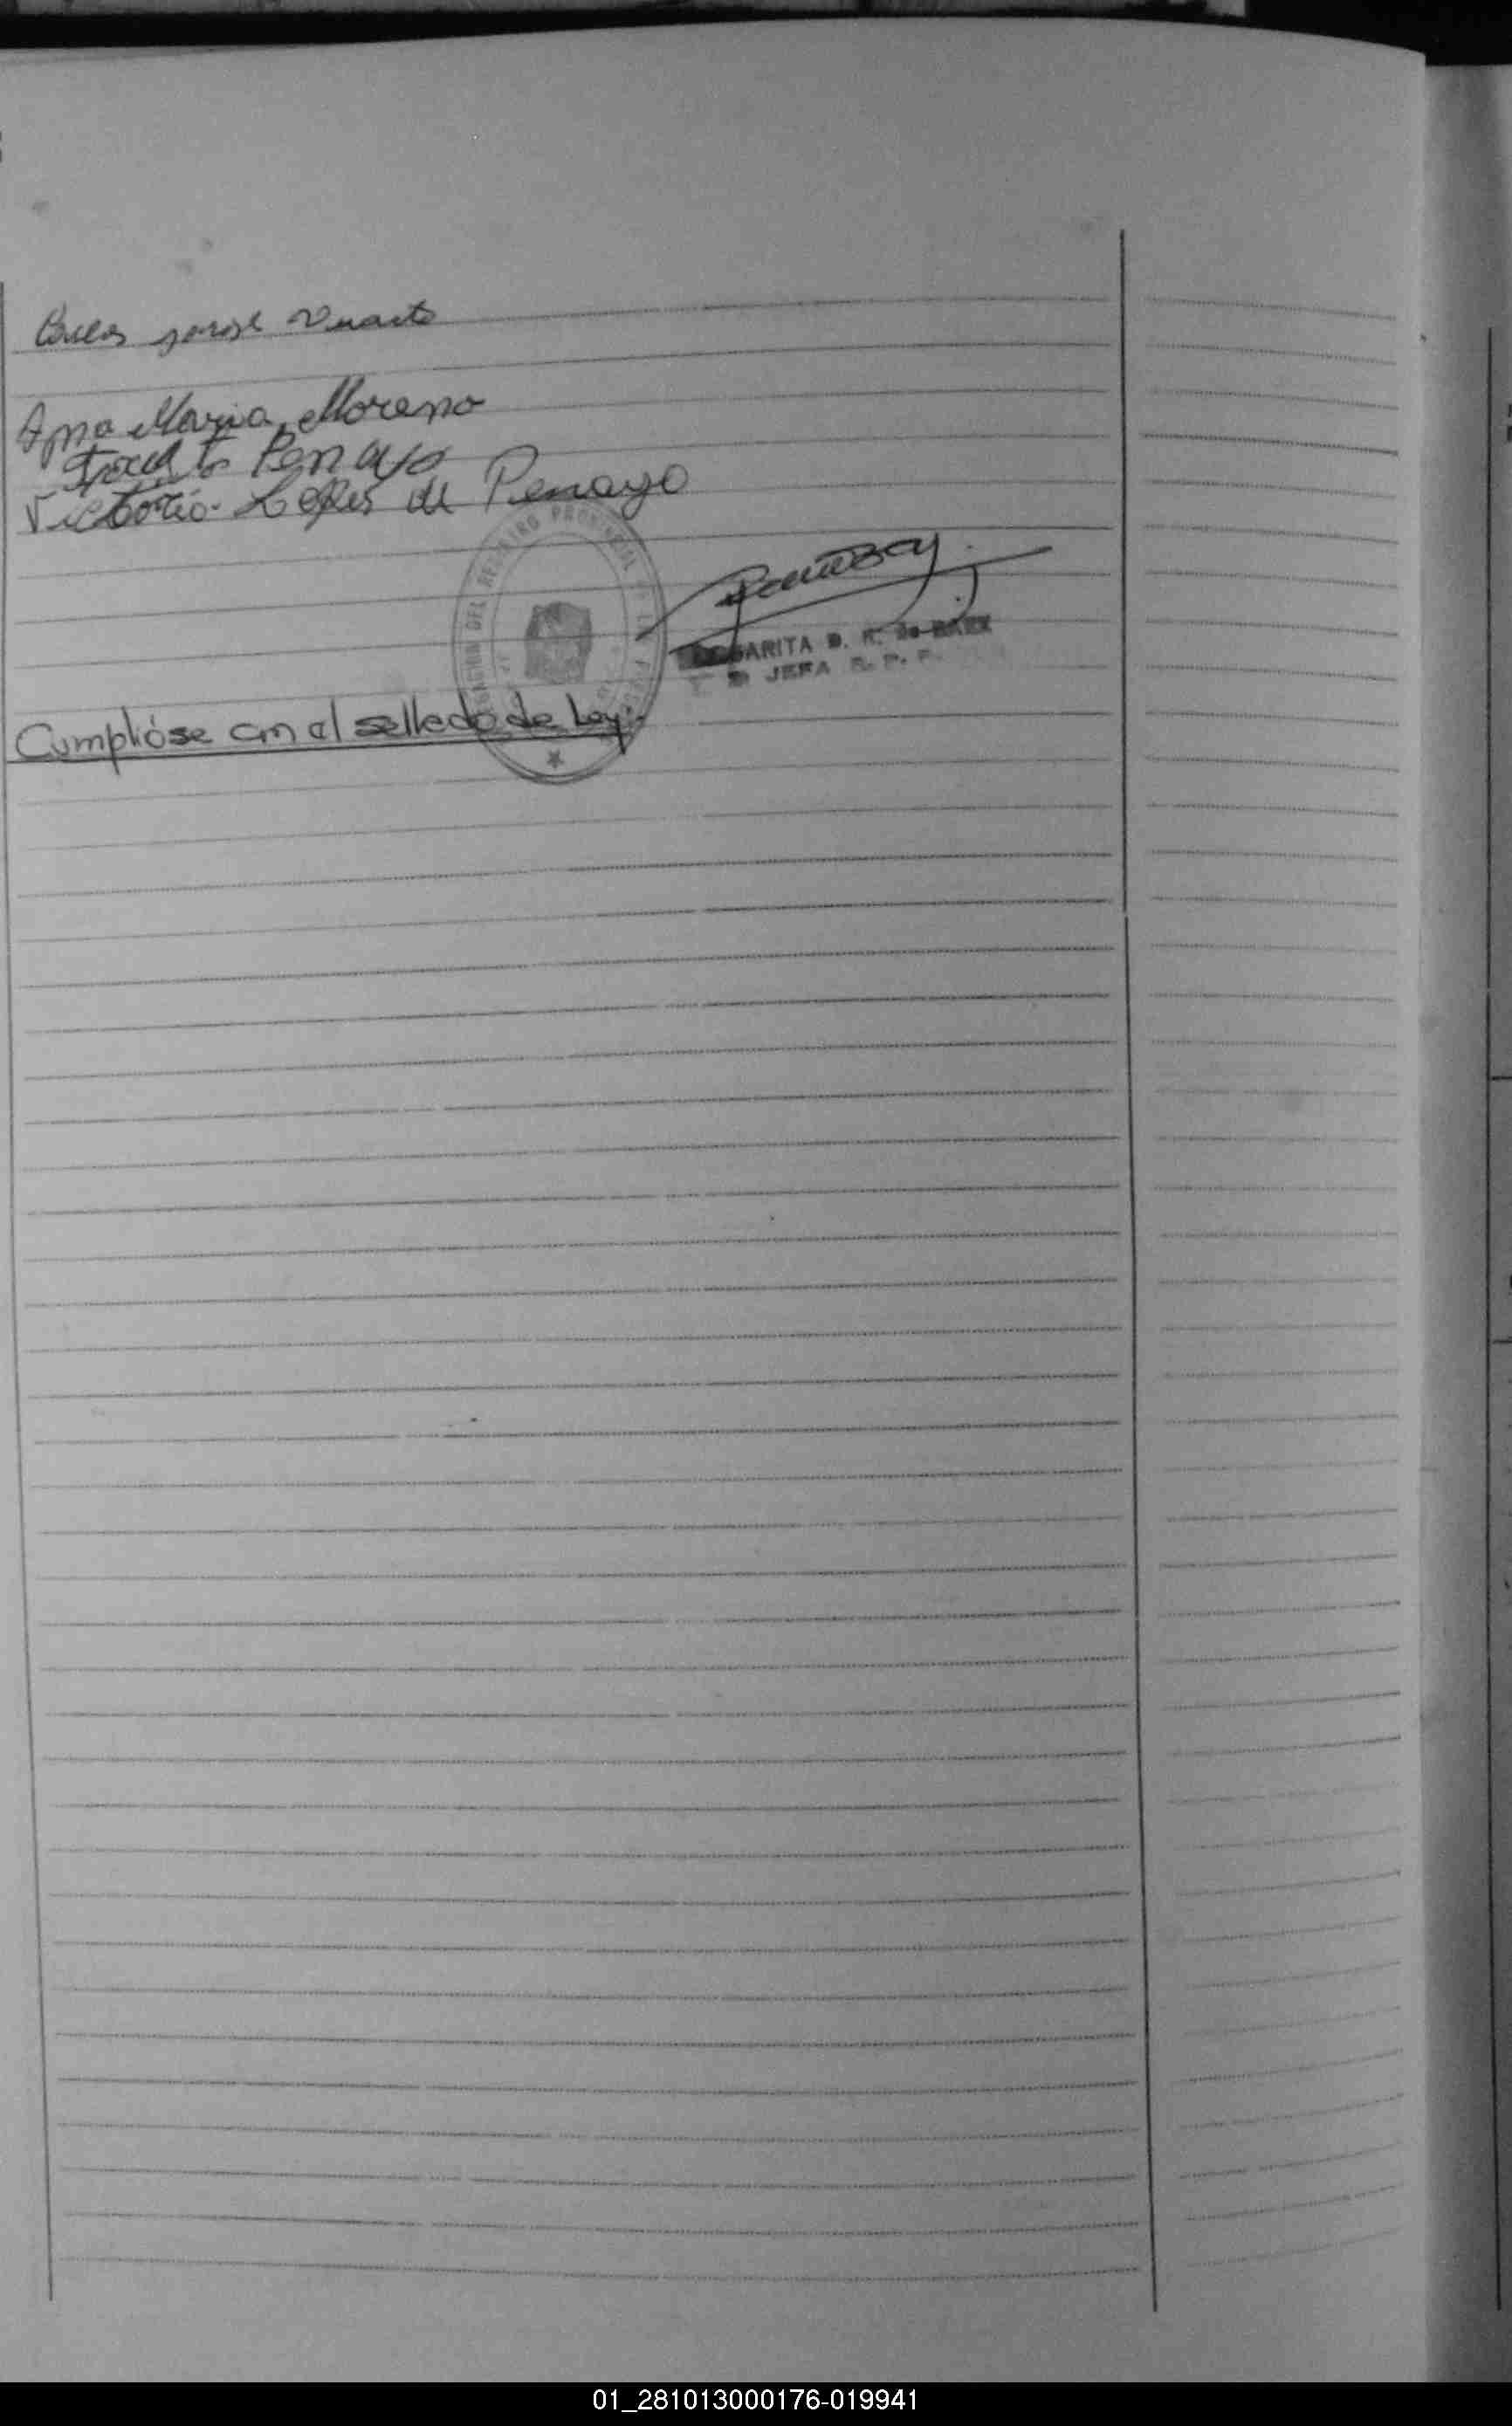 Carlos
Ana Maria Moreno
Penayo
Victoria Lopes de Penayo
DEL REGISTRO PROVINCIAL DE LAS PERSONAS
MARGARITA D. R. de BAEX
JEFA R. P. P.
Cumplióse con el sellado de Ley.-
01_281013000176-019941